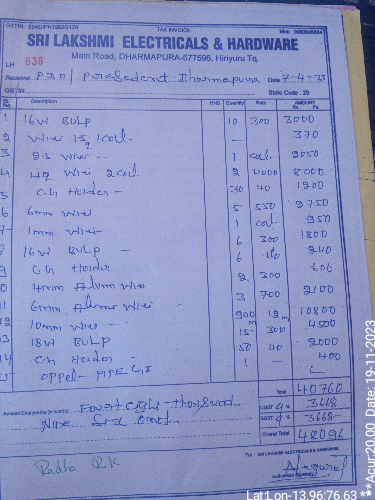 GSTIN: 29AUIPN1983G1Z8 TAX INVOICE
SRI LAKSHMI ELECTRICALS & HARDWARE
Main Road, DHARMAPURA-577596, Hiriyuru Tq.
LH 636
Receiver PDO/ President Dharmapura Date 7-4-23
GSTIN State Code : 29
Sl. No. Description HNS Quantity Rate AMOUNT Rs. Ps.
1 16w BULP 10 300 3000
2 wire 1 coil - 370
3 2.5 wire - 1 coil 2050
4 wire 2 coil 2 4000 8000
5 C.H Holder - 30 40 1200
6 6mm wire 5 550 2750
7 1mm wire 1 coil 950
8 16w BULP - 6 300 1800
9 C.H Holder 6 40 240
4mm Alum wire 2 300 600
6mm Alum wire 3 700 2100
12 10mm wire 900 m 12 10800
13 18w BULP 15 300 4500
14 C.H Holder - 50 40 2000
1 400
Total 40760
Amount Chargeable (in words) Fourt Eight Thousand
CGST 9% 3668
Nine Six Only
SGST 9% 3668
Grand Total 48096
For : SRI LAKSHMI ELECTRICALS & HARDWARE
Radha R.K
AUTHORISED SIGNATORY
Lat Lon-13.96,76.63 ***Acu:20.00 Date:19-11-2023